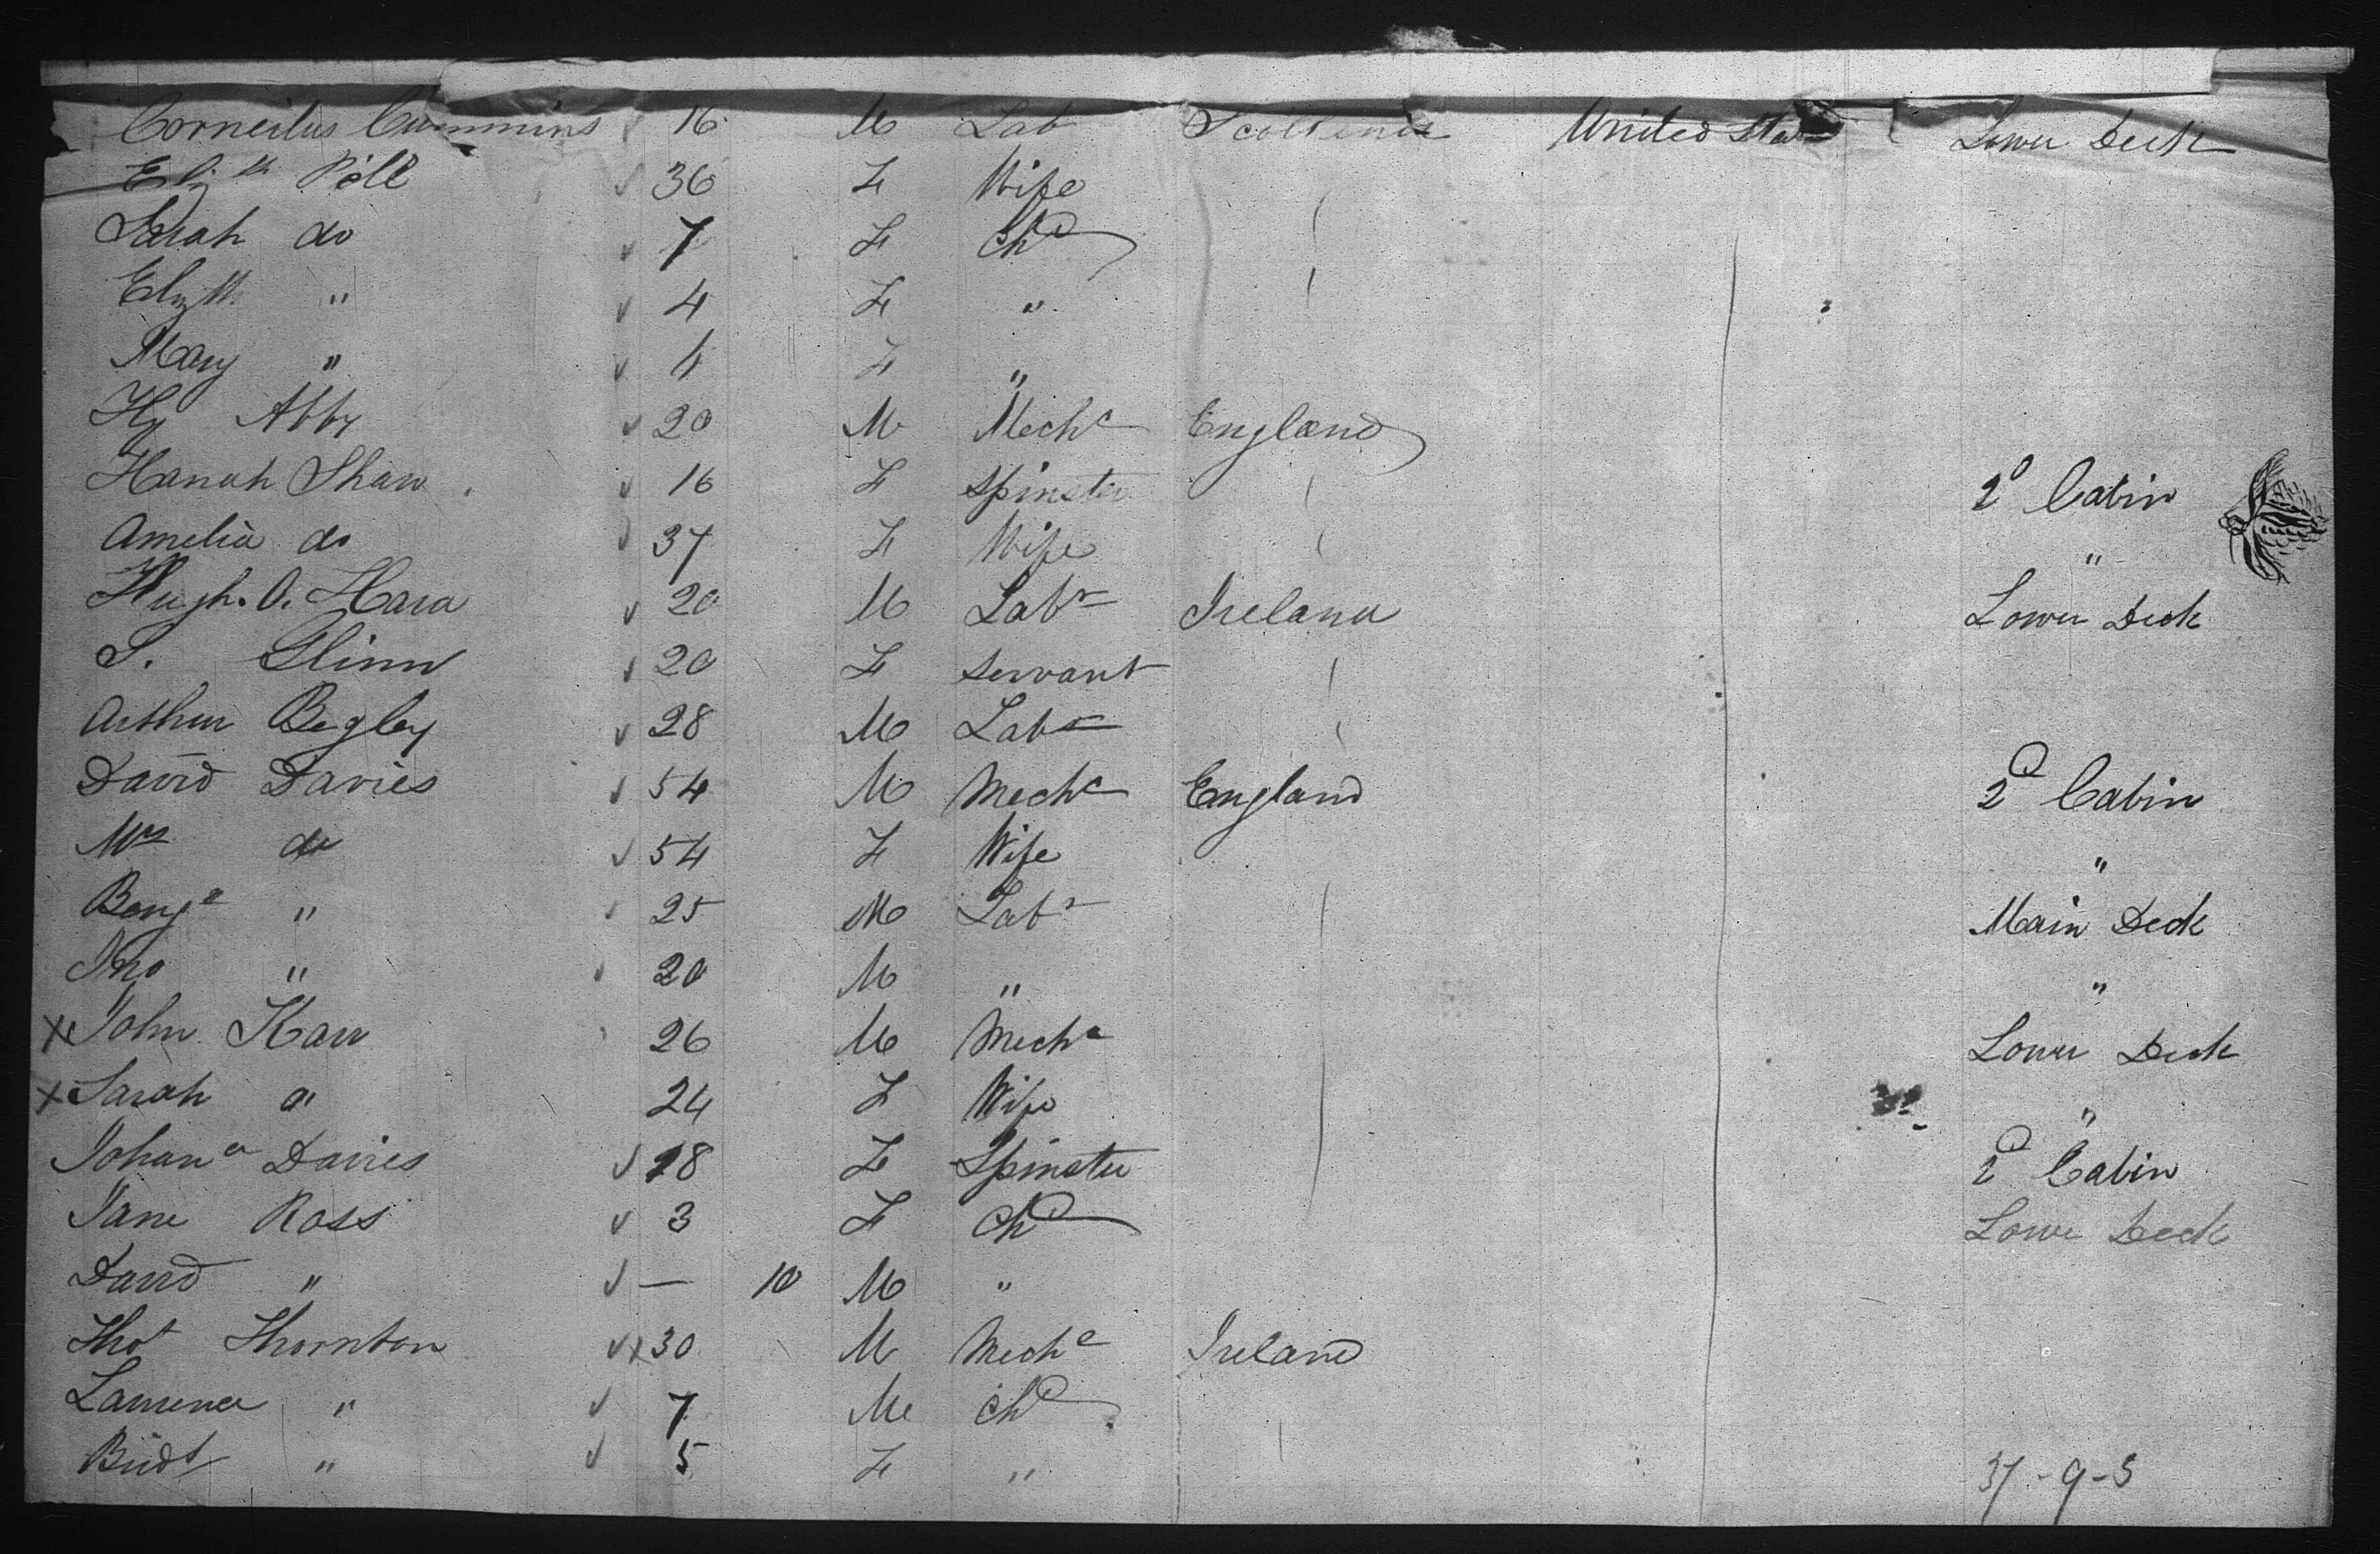 Corneilus Cummins 16 M Lab Scotland United Sta Lower Deck
Elizth Pell 36 F Wife
Sarah do 7 F Chd
Elizth " 4 F "
Mary " 4 F "
Hy Abby 20 M Mechc England
Hanah Shaw 16 F Spinster 2d Cabin
Amelia do 37 F Wife "
Hugh. O. Hara 20 M Labr Ireland Lower Deck
S. Glinn 20 F Servant
Arthur Begley 28 M Labr
David Davies 54 M Mechc England 2d Cabin
Mrs do 54 F Wife "
Benjn " 25 M Labr Main Deck
Jno " 20 M " "
x John Karr 26 M Mechc Lower Deck
x Sarah " 24 F Wife "
Johana Davies 18 F Spinster 2d Cabin
Jane Ross 3 F Chd Lower Deck
David " — 10 M "
Thos Thornton x 30 M Mechc Ireland
Lawrence " 7 M Chd
Bridt " 5 F " 37-9-5